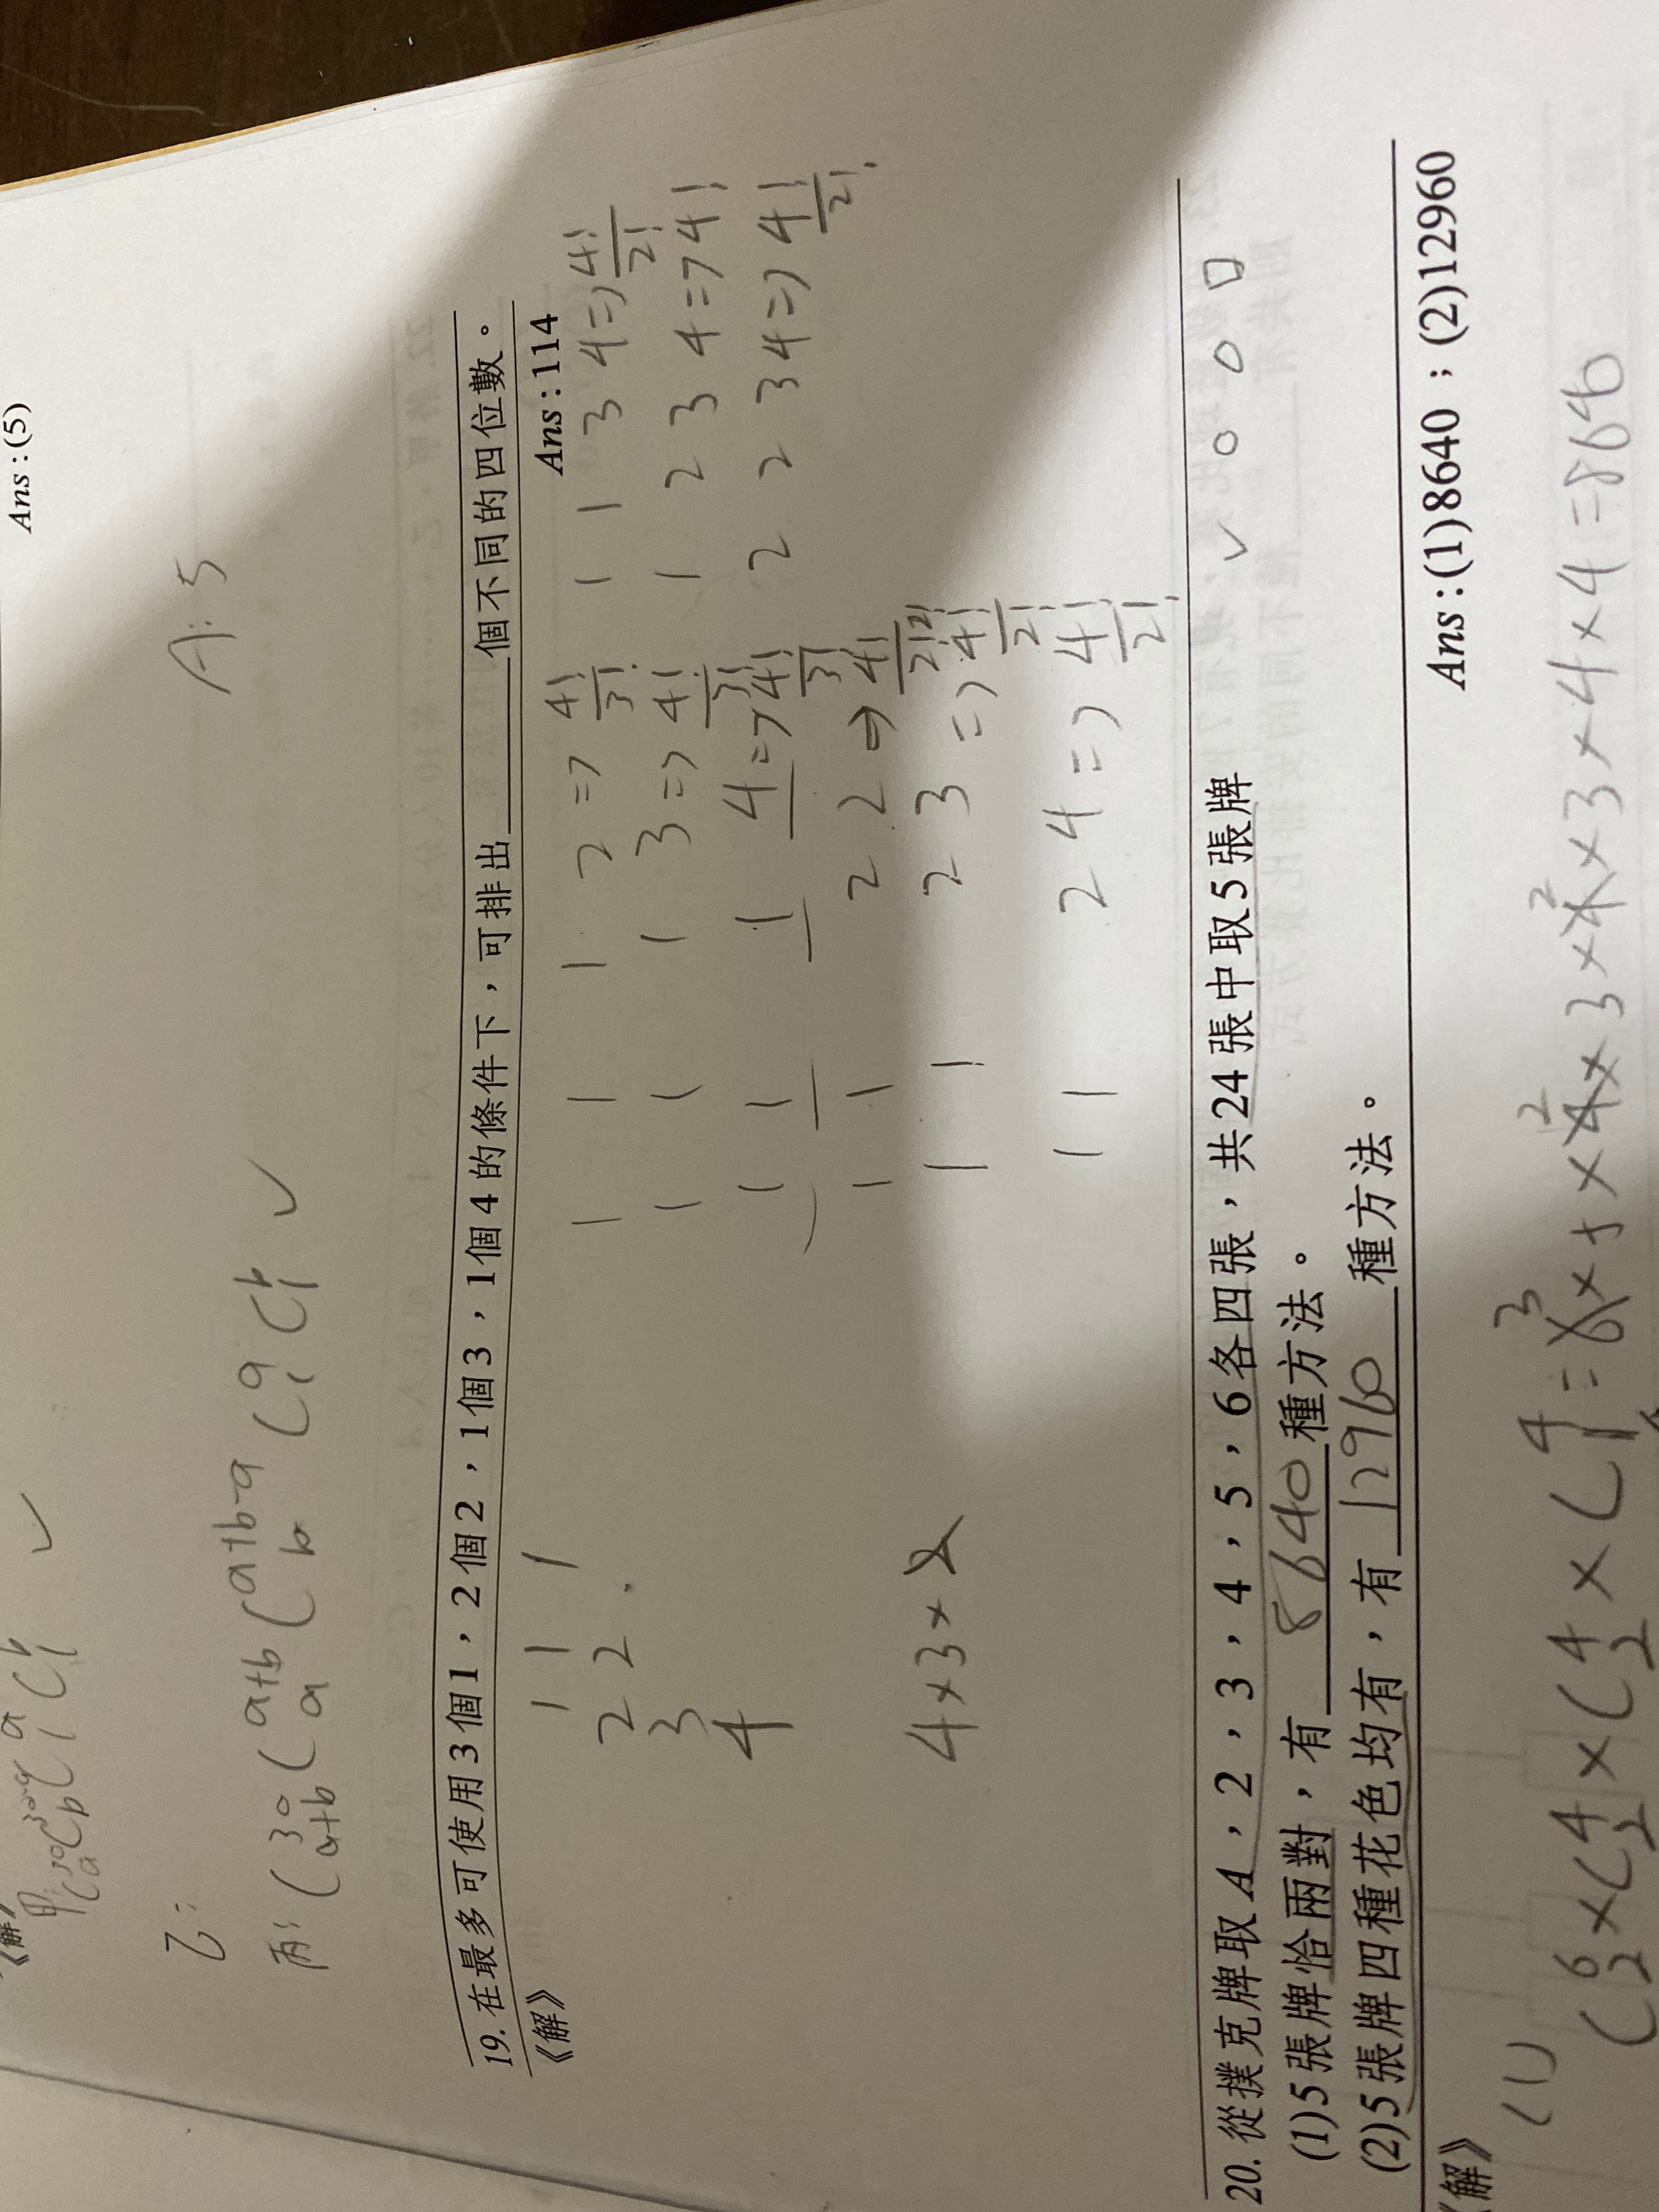 Ans:(5)
《解》
甲:
C a b
乙:
A:5
丙: C 30 a+b C a+b a C a+b-a b C a 1 C b 1 ✓
19. 在最多可使用3個1，2個2，1個3，1個4的條件下，可排出______個不同的四位數。
《解》
Ans:114
1 1 1
2 2
3
4
4×3×2
1 1 1 2 => 4!/3!
1 1 1 3 => 4!/3!
1 1 1 4 => 4!/3!
1 1 2 2 => 4!/2!2!
1 1 2 3 => 4!/2!
1 1 2 4 => 4!/2!
1 1 3 4 => 4!/2!
1 2 3 4 => 4!
2 2 3 4 => 4!/2!
20. 從撲克牌取A，2，3，4，5，6各四張，共24張中取5張牌
(1)5張牌恰兩對，有 8640 種方法。
(2)5張牌四種花色均有，有 12960 種方法。
✓ ○ ○ □
Ans:(1)8640；(2)12960
《解》
(1)
C 6 2 × C 4 2 × C 4 2 × C 4 1 = 6×5×4×3×4×3×4×4=864